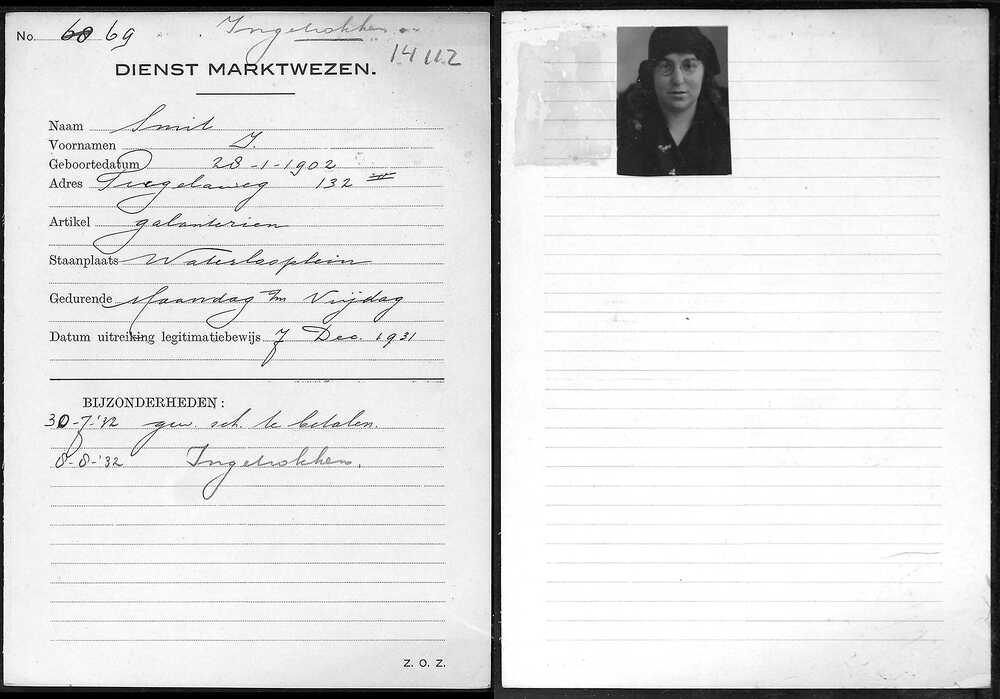 No. 68 69 Ingetrokken
14 112
DIENST MARKTWEZEN.
Naam Smit
Voornamen J.
Geboortedatum 28-1-1902
Adres 132 III
Artikel galanterien
Staanplaats Waterlooplein
Gedurende Maandag t/m Vrijdag
Datum uitreiking legitimatiebewijs 7 Dec. 1931
BIJZONDERHEDEN:
30-7-'32 gew. sch. te betalen.
8-8-'32 Ingetrokken.
Z. O. Z.